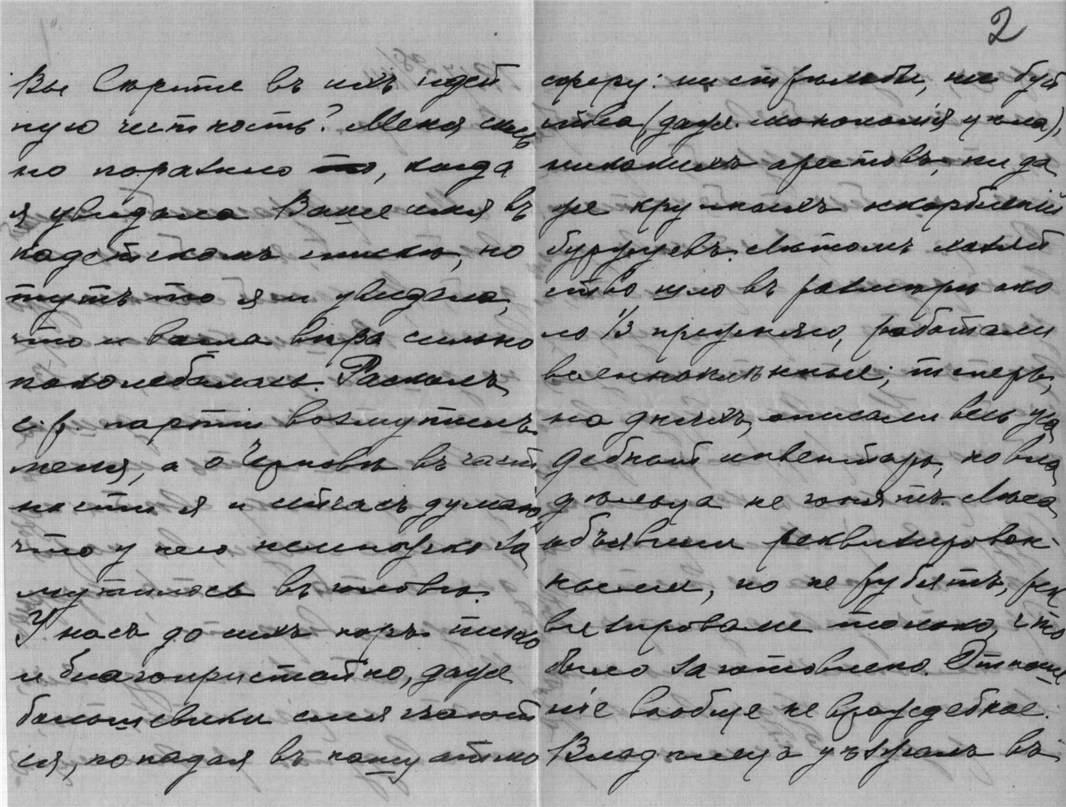 2
Вы верите въ ихъ идей
ную честность? Меня силь
но поразило то, когда
я увидала Ваше имя въ
кадетскомъ списке, но
тутъ то я и увидала,
что и ваша вера сильно
поколебалась. Расколъ
с.р. партiи возмутилъ
меня, а о Чернове въ част
ности я и сейчасъ думаю,
что у него немножко за
мутилось въ голове.
У насъ до сихъ поръ тихо
и благопристойно, даже
большевики смягчают
ся, попадая въ нашу атмо
сферу: ни стрельбы, ни буй
ства (даже монополiя цела),
никакихъ арестовъ, ни да
же крупныхъ оскорбленiй
буржуевъ. Летомъ хозяй
ство шло въ размере око
ло 1/3 прежняго, работали
военнопленные; теперь,
на дняхъ, описали весь уса
дебный инвентарь, но вла
дельца не гонятъ. Леса
объявили реквизирован-
ными, но не рубятъ, рек
визировали только, что
было заготовлено. Отноше
нiе вообще не враждебное.
Владельца уезда въ